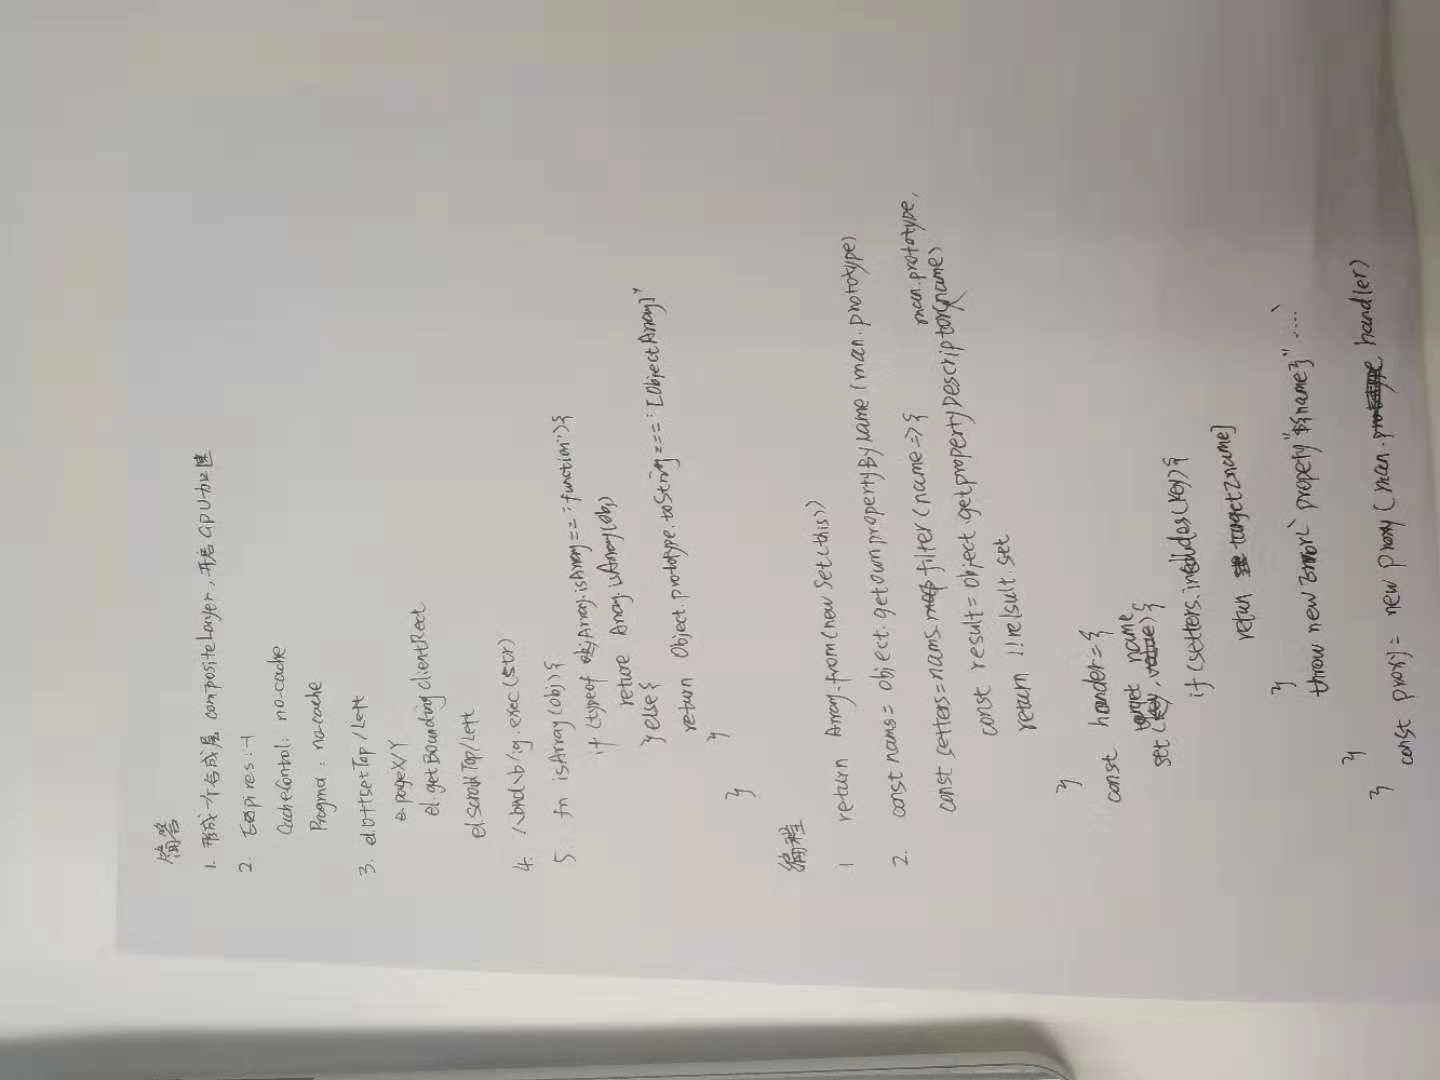 简答
1. 形成一个合成层 compositeLayer, 开启GPU加速
2. Expires: -1
CacheControl: no-cache
Pragma: no-cache
3. el.offsetTop/Left
e.pageX/Y
el.getBoundingClientRect
el.scrollTop/Left
4. /\band\b/ig.exec(str)
5. fn isArray(obj){
if (typeof Array.isArray === 'function'){
return Array.isArray(obj)
} else {
return Object.prototype.toString === '[ObjectArray]'
}
}
编程
1 return Array.from(new Set(this))
2. const nams = Object.getOwnpropertyByName(man.prototype)
const setters = nams.filter(name => {
const result = Object.getpropertyDescriptor(man.prototype, name)
return !!relsult.set
}
const hander = {
set (target name) {
if (setters.includes(key) {
return target[name]
}
throw new Error(` propety "${name}" ....`
}
}
const proxy = new proxy (man. handler)
}